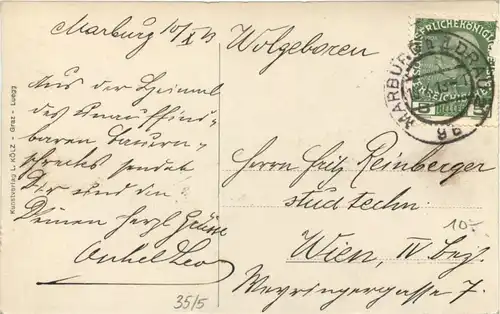 Marburg 10/X 13
Aus der Heimat
des unauffind-
baren Bauern-
schrecks sendet
Dir und den
Deinen herzl. Grüsse
Onkel Leo
Wolgeboren
Herrn Fritz Reinberger
stud techn.
Wien, IV Bez.
Weyringergasse 7.
MARBURG a. DRAU
9b
10.-
35/5
Kunstverlag L. KÖLZ - Graz - Luegg